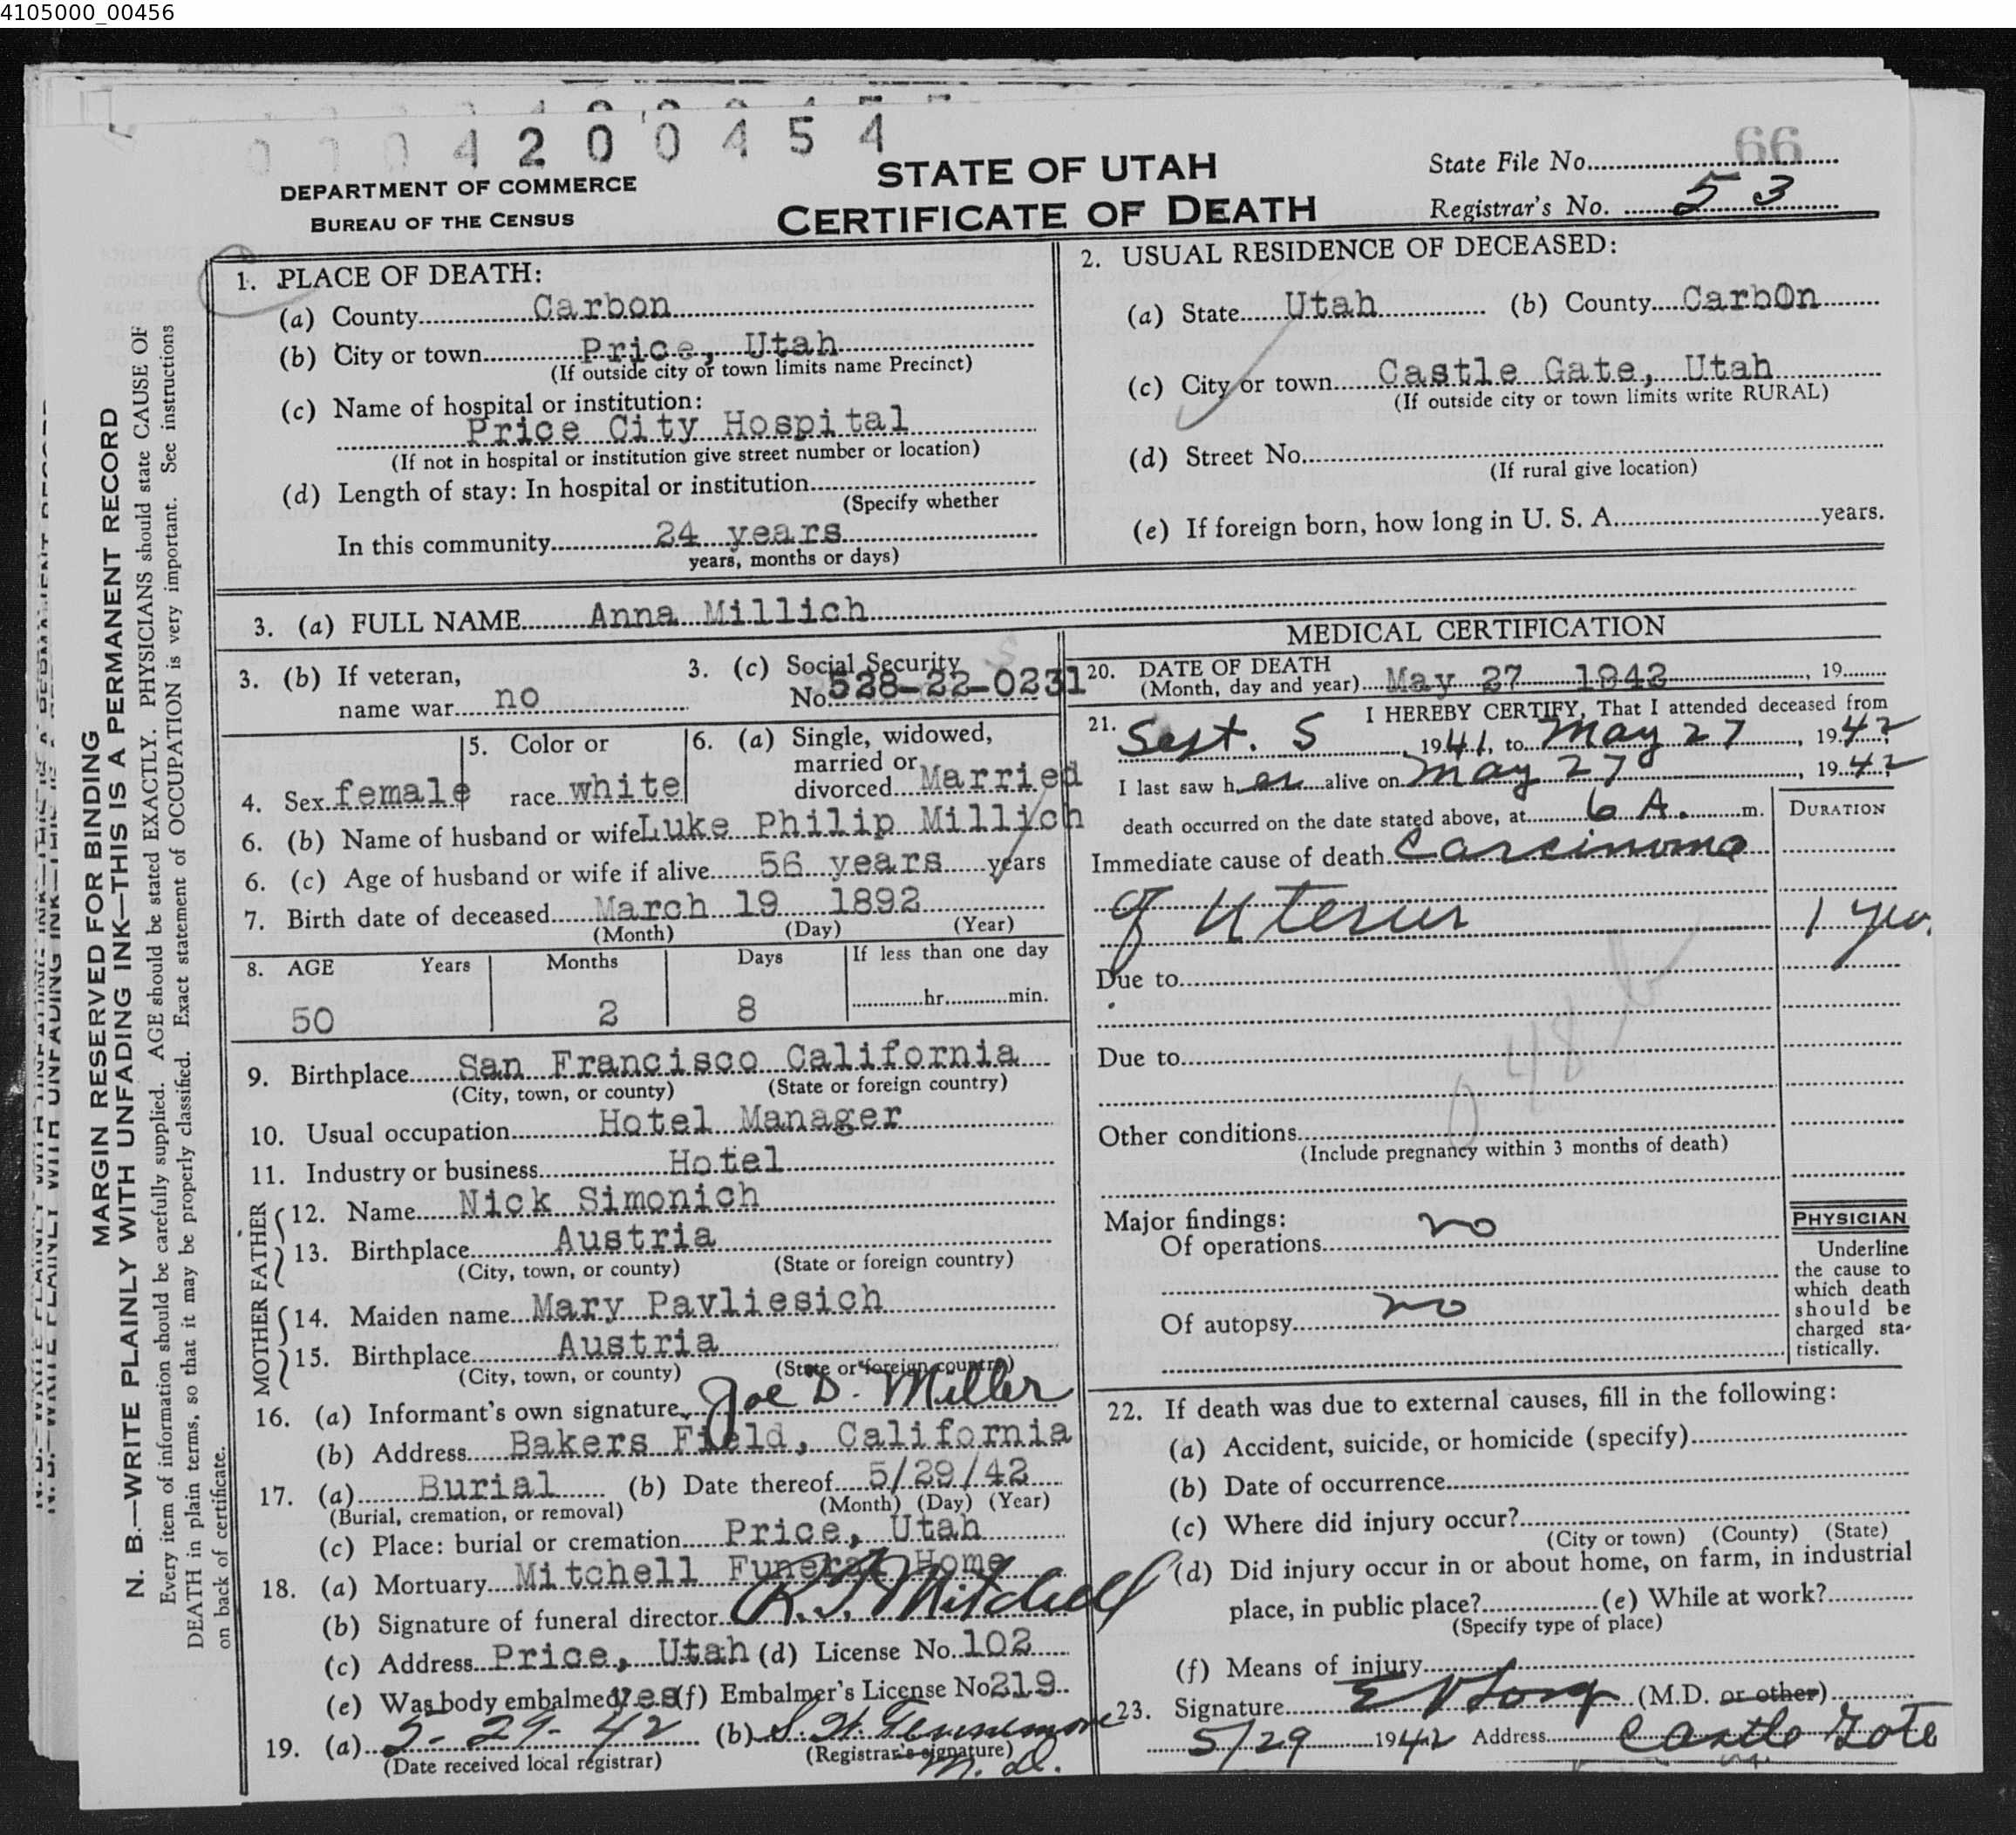 4105000_00456
0004200454
66
DEPARTMENT OF COMMERCE
BUREAU OF THE CENSUS
STATE OF UTAH
CERTIFICATE OF DEATH
State File No.
Registrar's No. 53
MARGIN RESERVED FOR BINDING
N. B.—WRITE PLAINLY WITH UNFADING INK—THIS IS A PERMANENT RECORD
Every item of information should be carefully supplied. AGE should be stated EXACTLY. PHYSICIANS should state CAUSE OF
DEATH in plain terms, so that it may be properly classified. Exact statement of OCCUPATION is very important. See instructions
on back of certificate.
1. PLACE OF DEATH:
(a) County Carbon
(b) City or town Price, Utah
(If outside city or town limits name Precinct)
(c) Name of hospital or institution:
Price City Hospital
(If not in hospital or institution give street number or location)
(d) Length of stay: In hospital or institution
(Specify whether
In this community 24 years
years, months or days)
2. USUAL RESIDENCE OF DECEASED:
(a) State Utah (b) County CarbOn
(c) City or town Castle Gate, Utah
(If outside city or town limits write RURAL)
(d) Street No.
(If rural give location)
(e) If foreign born, how long in U. S. A. years.
3. (a) FULL NAME Anna Millich
3. (b) If veteran,
name war no
3. (c) Social Security
No. 528-22-0231
4. Sex female
5. Color or
race white
6. (a) Single, widowed,
married or
divorced Married
6. (b) Name of husband or wife Luke Philip Millich
6. (c) Age of husband or wife if alive 56 years years
7. Birth date of deceased March 19 1892
(Month) (Day) (Year)
8. AGE Years Months Days If less than one day
50 2 8 hr. min.
9. Birthplace San Francisco California
(City, town, or county) (State or foreign country)
10. Usual occupation Hotel Manager
11. Industry or business Hotel
FATHER
12. Name Nick Simonich
13. Birthplace Austria
(City, town, or county) (State or foreign country)
MOTHER
14. Maiden name Mary Pavliesich
15. Birthplace Austria
(City, town, or county) (State or foreign country)
16. (a) Informant's own signature Joe D. Miller
(b) Address Bakers Field, California
17. (a) Burial (b) Date thereof 5/29/42
(Burial, cremation, or removal) (Month) (Day) (Year)
(c) Place: burial or cremation Price, Utah
18. (a) Mortuary Mitchell Funeral Home
(b) Signature of funeral director Mitchell
(c) Address Price, Utah (d) License No. 102
(e) Was body embalmed? yes (f) Embalmer's License No 219
19. (a) 5-29-42 (b)
(Date received local registrar) (Registrar's signature)
M. D.
MEDICAL CERTIFICATION
20. DATE OF DEATH
(Month, day and year) May 27 1942, 19
21. I HEREBY CERTIFY, That I attended deceased from
Sept. 5, 1941, to May 27, 1942
I last saw her alive on May 27, 1942
death occurred on the date stated above, at 6 A. m.
DURATION
Immediate cause of death Carcinoma
of Uterus
Due to
Due to
048
Other conditions
(Include pregnancy within 3 months of death)
Major findings:
Of operations no
Of autopsy no
PHYSICIAN
Underline
the cause to
which death
should be
charged sta-
tistically.
22. If death was due to external causes, fill in the following:
(a) Accident, suicide, or homicide (specify)
(b) Date of occurrence
(c) Where did injury occur?
(City or town) (County) (State)
(d) Did injury occur in or about home, on farm, in industrial
place, in public place? (e) While at work?
(Specify type of place)
(f) Means of injury
23. Signature (M.D. or other)
5/29 1942 Address Castle Gate